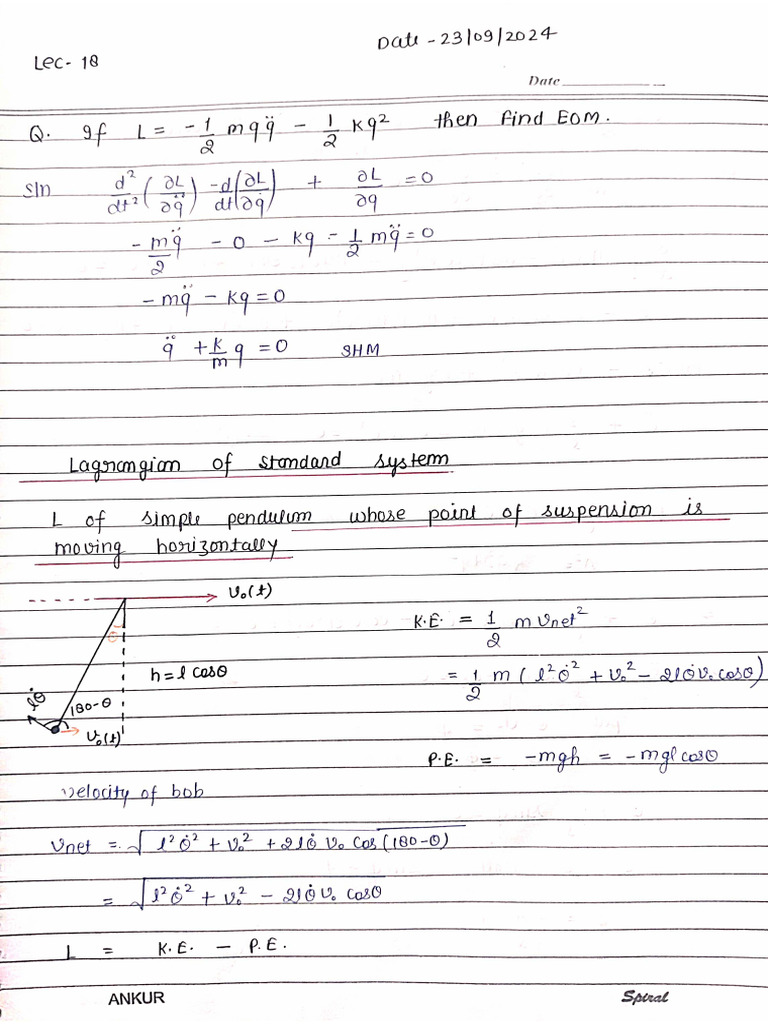 Date - 23/09/2024
Lec- 18
Date
Q. If L = -1/2 m q q̈ - 1/2 K q² then find EOM.
Sln d²/dt² (∂L/∂q̈) - d/dt (∂L/∂q̇) + ∂L/∂q = 0
- m q̈/2 - 0 - kq - 1/2 m q̈ = 0
- m q̈ - kq = 0
q̈ + k/m q = 0 SHM
Lagrangian of standard system
L of simple pendulum whose point of suspension is
moving horizontally
v₀(t)
θ
K.E. = 1/2 m Vnet²
h = l cosθ
= 1/2 m ( l² θ̇² + v₀² - 2l θ̇ v₀ cosθ)
lθ̇
180-θ
v₀(t)
P.E. = -mgh = -mgl cosθ
velocity of bob
Vnet = √(l² θ̇² + v₀² + 2l θ̇ v₀ cos(180-θ))
= √(l² θ̇² + v₀² - 2l θ̇ v₀ cosθ)
L = K.E. - P.E.
ANKUR
Spiral